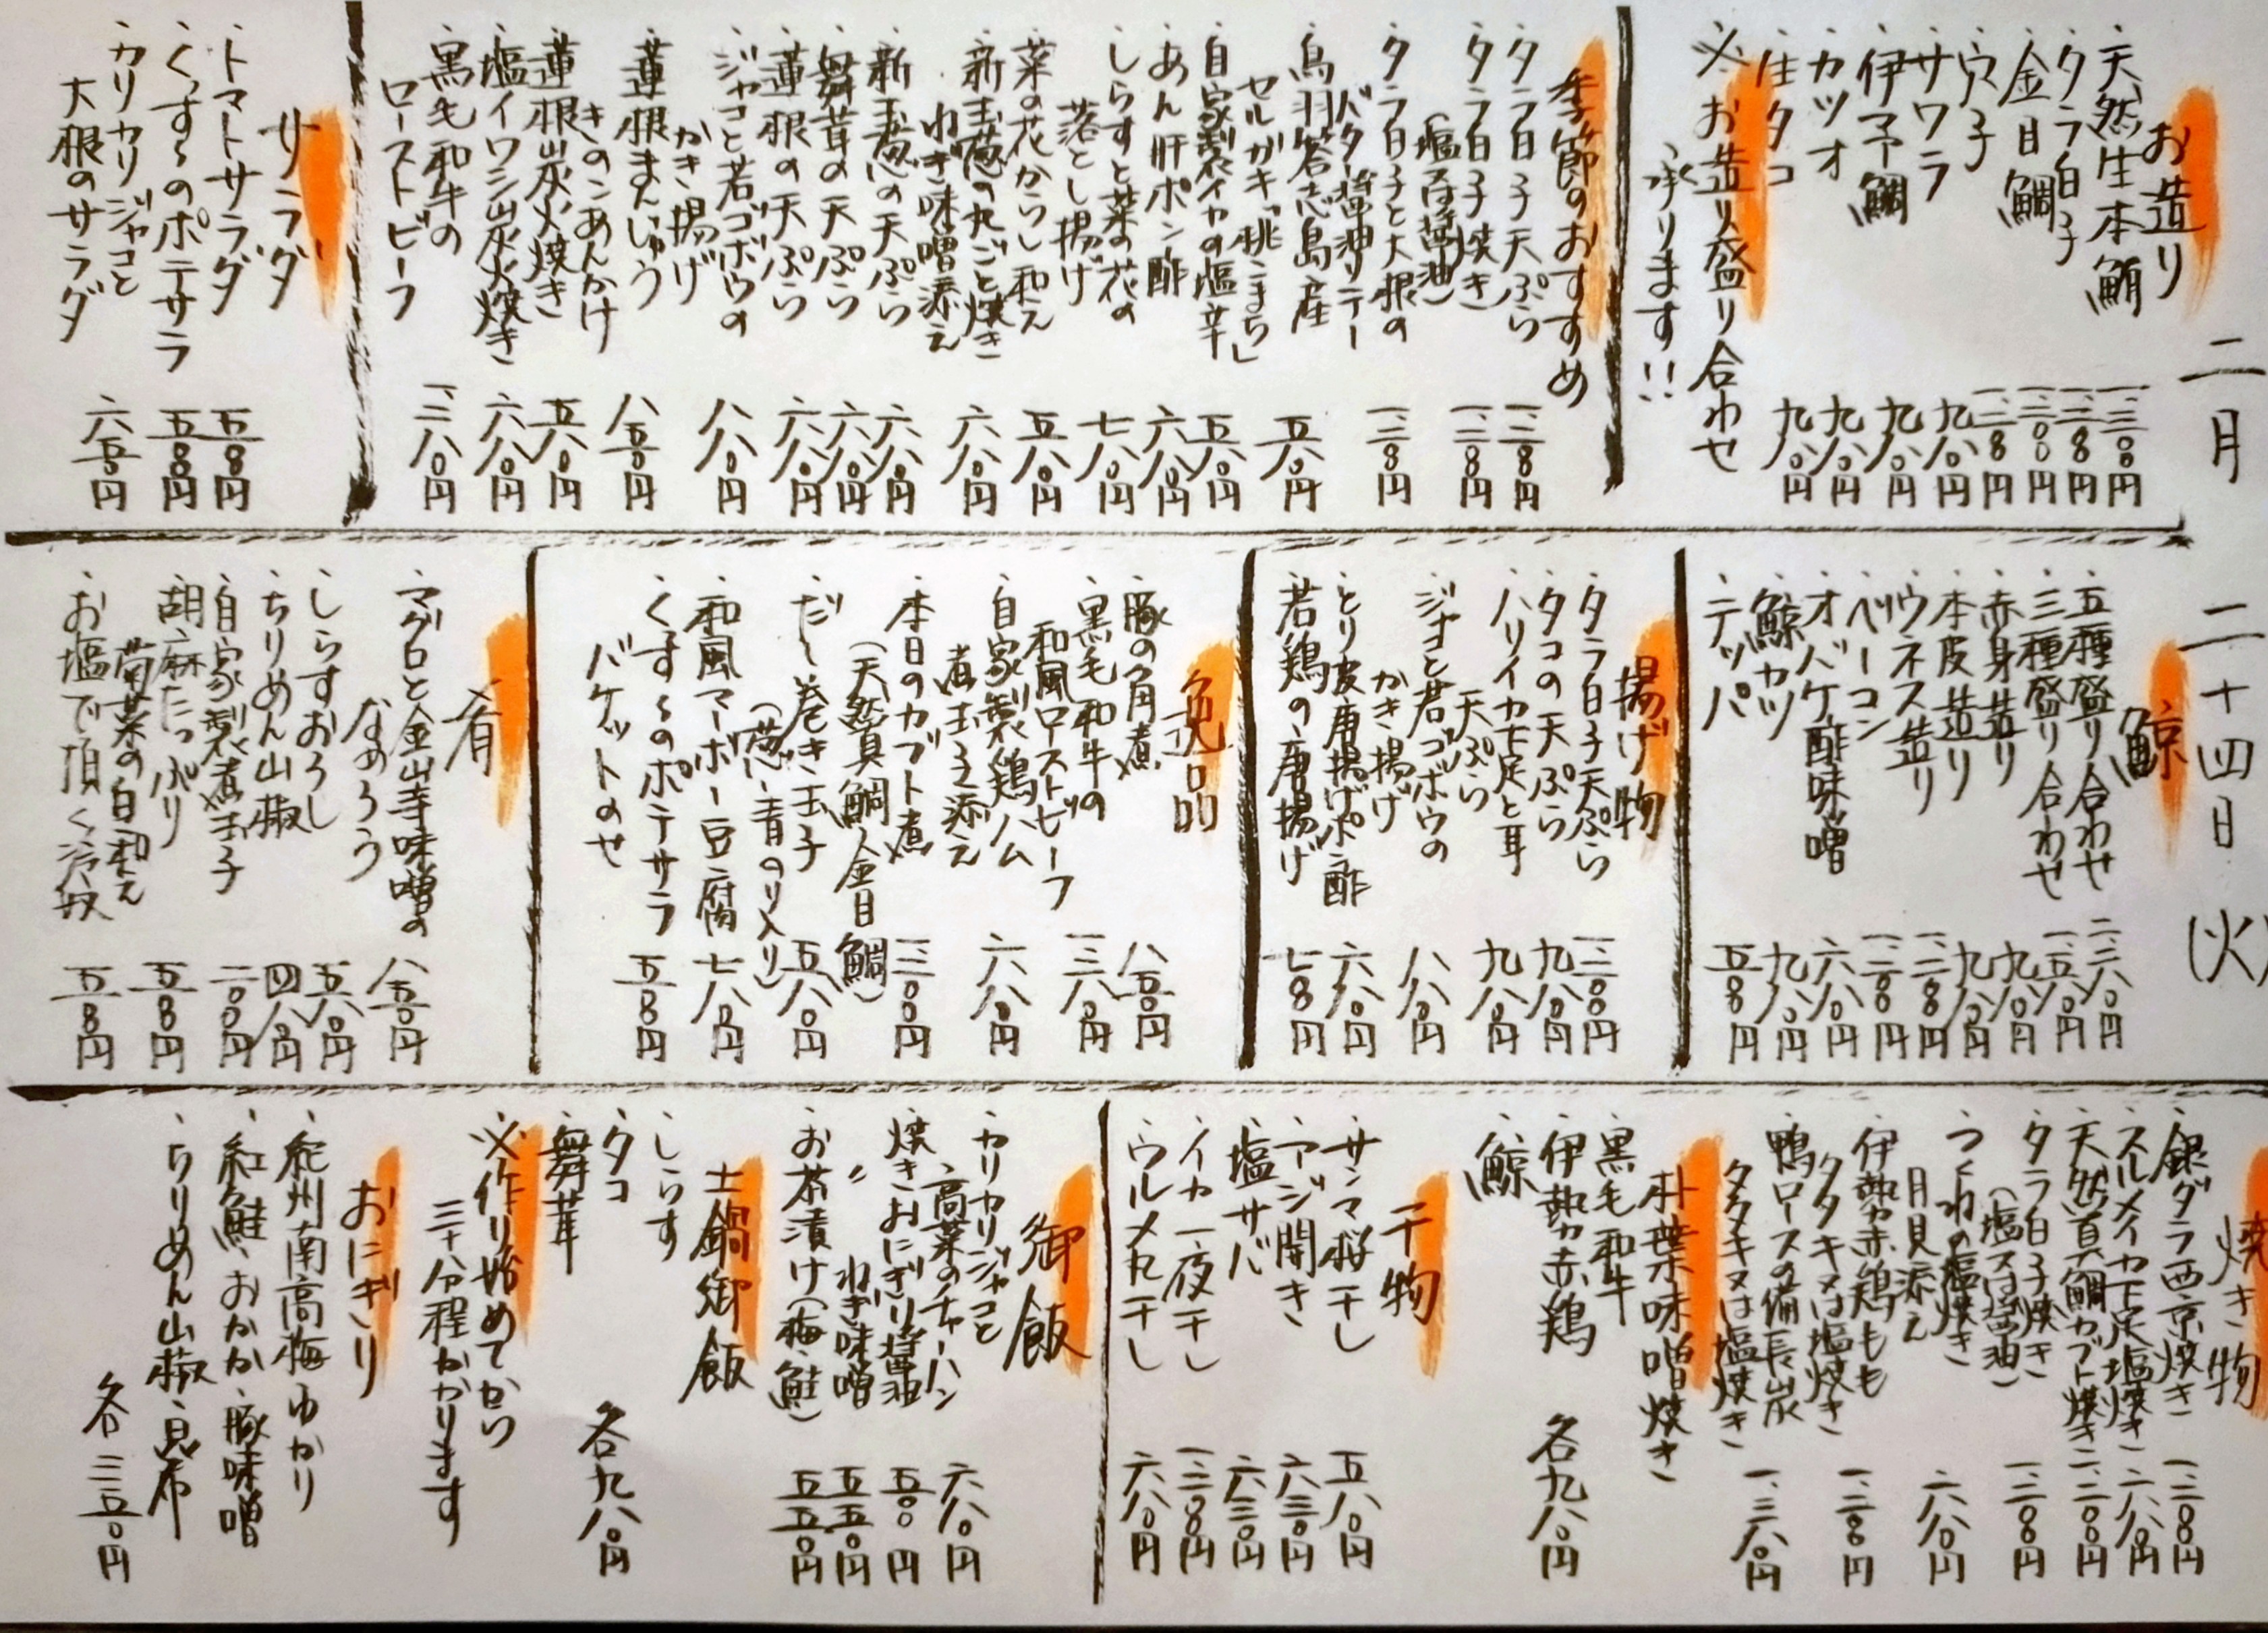 二月 二十四日 (火)
お造り
・天然生本鮪
・タラ白子
・金目鯛
・穴子
・サワラ
・伊予鯛
・カツオ
・生タコ
九八〇円
九八〇円
九八〇円
九八〇円
※お造り盛り合わせ
承ります!!
季節のおすすめ
・タラ白子天ぷら
・タラ白子焼き
(塩又は醤油)
・タラ白子と大根の
バター醤油ソテー
・鳥羽答志島産
セルガキ「桃こまち」 五八〇円
・自家製イカの塩辛 五八〇円
・あん肝ポン酢 六八〇円
・しらすと菜の花の
落とし揚げ 七八〇円
・菜の花からし和え 五八〇円
・新玉葱の丸ごと焼き
ねぎ味噌添え 六八〇円
・新玉葱の天ぷら 六八〇円
・舞茸の天ぷら 六八〇円
・蓮根の天ぷら 六八〇円
・ジャコと若ゴボウの
かき揚げ 八八〇円
・蓮根まんじゅう
きのこあんかけ 八五〇円
・蓮根炭火焼き 五八〇円
・塩イワシ炭火焼き 六八〇円
・黒毛和牛の
ローストビーフ 一、三八〇円
サラダ
・トマトサラダ 五五〇円
・くっすくのポテサラ 五五〇円
・カリカリジャコと
大根のサラダ 六五〇円
鯨
・五種盛り合わせ 二、二八〇円
・三種盛り合わせ 一、五八〇円
・赤身造り 九八〇円
・本皮造り 九八〇円
・ウネス造り
・ベーコン
・オバケ酢味噌 六八〇円
・鯨カツ 九八〇円
・テッパ 五八〇円
揚げ物
・タラ白子天ぷら
・タコの天ぷら 九八〇円
・ハリイカ下足と耳
天ぷら 九八〇円
・ジャコと若ゴボウの
かき揚げ 八八〇円
・とり皮唐揚げポン酢 六八〇円
・若鶏の唐揚げ 七八〇円
逸品
・豚の角煮 八五〇円
・黒毛和牛の
和風ローストビーフ 一、三八〇円
・自家製鶏ハム
煮玉子添え 六八〇円
・本日のカブト煮
(天然真鯛、金目鯛)
・だし巻き玉子 五八〇円
(葱・青のり入り)
・和風マーボー豆腐 七八〇円
・くすくのポテサラ
バケットのせ 五五〇円
肴
・マグロと金山寺味噌の
なめろう 八五〇円
・しらすおろし 五八〇円
・ちりめん山椒 四八〇円
・自家製煮玉子
・胡麻たっぷり
菊菜の白和え 五五〇円
・お塩で頂く冷奴 五五〇円
焼き物
・銀ダラ西京焼き
・スルメイカ下足塩焼き 六八〇円
・天然真鯛カブト焼き
・タラ白子焼き
(塩又は醤油)
・つくねの塩焼き
月見添え 六八〇円
・伊勢赤鶏もも
タタキ又は塩焼き
・鴨ロースの備長炭
タタキ又は塩焼き 一、三八〇円
朴葉味噌焼き
・黒毛和牛
・伊勢赤鶏
・鯨
各九八〇円
干物
・サンマ桜干し 五八〇円
・アジ開き 六三〇円
・塩サバ 六三〇円
・イカ一夜干し
・ウルメ丸干し 六八〇円
御飯
・カリカリジャコと
高菜のチャーハン 六八〇円
・焼きおにぎり醤油 五〇〇円
・〃 ねぎ味噌 五五〇円
・お茶漬け(梅・鮭) 五五〇円
土鍋御飯
・しらす
・タコ
・舞茸
各九八〇円
※作り始めてから
三十分程かかります
おにぎり
・紀州南高梅・ゆかり
・紅鮭・おかか・豚味噌
・ちりめん山椒・昆布
各三五〇円